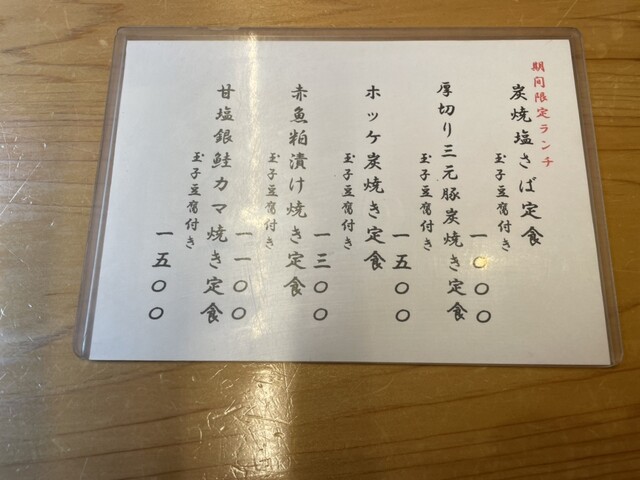 期間限定ランチ
炭焼塩さば定食
玉子豆腐付き
一〇〇〇
厚切り三元豚炭焼き定食
玉子豆腐付き
一五〇〇
ホッケ炭焼き定食
玉子豆腐付き
一三〇〇
赤魚粕漬け焼き定食
玉子豆腐付き
一一〇〇
甘塩銀鮭カマ焼き定食
玉子豆腐付き
一五〇〇